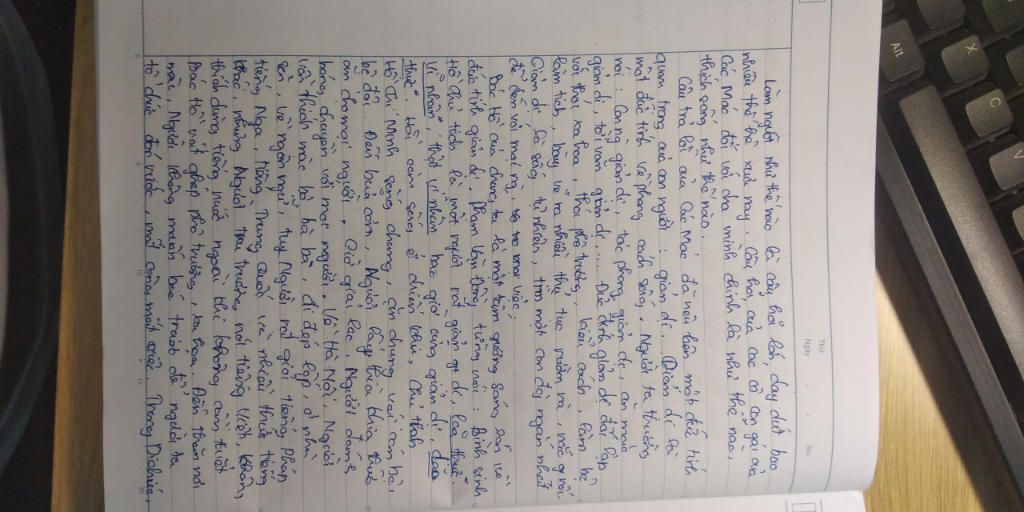 Thứ
Ngày
No.
Làm người như thế nào là câu hỏi lớn, day dứt bao
nhiêu thế hệ xưa nay. Câu hỏi của các cô con gái của
Các Mác đối với cha mình chính là như thế nào,
thích sống như thế nào.
Câu trả lời của Các Mác đã nêu lên một đức tính
quan trọng của con người: giản dị. Giản dị là
một đức tính về phong cách sống. Người ta thường
nói: Con ng giản dị, tác phong giản dị, ăn mặc
giản dị, lời văn giản dị... Đức tính giản dị đối lập
với thói xa hoa, thói phô trương, kiểu cách, làm bộ
làm tịch, bày vẽ ra nhiều thủ tục rườm rà,
Giản dị là sống tự nhiên, tìm một con đg ngắn nhất
để đến với mọi ng, mọi việc.
Bác Hồ của chúng ta là một tấm gương sáng về
đức tính giản dị. Phạm Văn Đồng từng nói: Bình sinh
Hồ Chủ tịch là một người rất giản dị, lão thực
Vĩ nhân, thật vĩ nhân bao giờ cũng giản dị, lão
thực". Hồi còn sống ở chiến khu, Chủ tịch
Hồ Chí Minh sống chung, ăn chung với cán bộ,
bộ đội. Đến bữa cơm, Người lấy thìa
ăn cho mọi người. Giờ giải lao, Người đánh
bóng chuyền với mọi người. Về Hà Nội, Người
vẫn thích mặc bộ bà ba, đi dép lốp, ở nhà
sàn. Về ngôn ngữ, tuy Người nói giỏi tiếng Pháp
tiếng Nga, tiếng Trung Quốc và nhiều thứ tiếng
khác, nhưng Người chủ trương nói tiếng Việt, không
thích dùng tiếng nước ngoài khi không cần thiết
Bác Hồ rất ghét phô trương, xa hoa. Đến thăm nơi
nào, Người không muốn báo trước để người ta
tổ chức đón rước, mất công mất việc. Trong Di chúc,
Alt
X
C
V